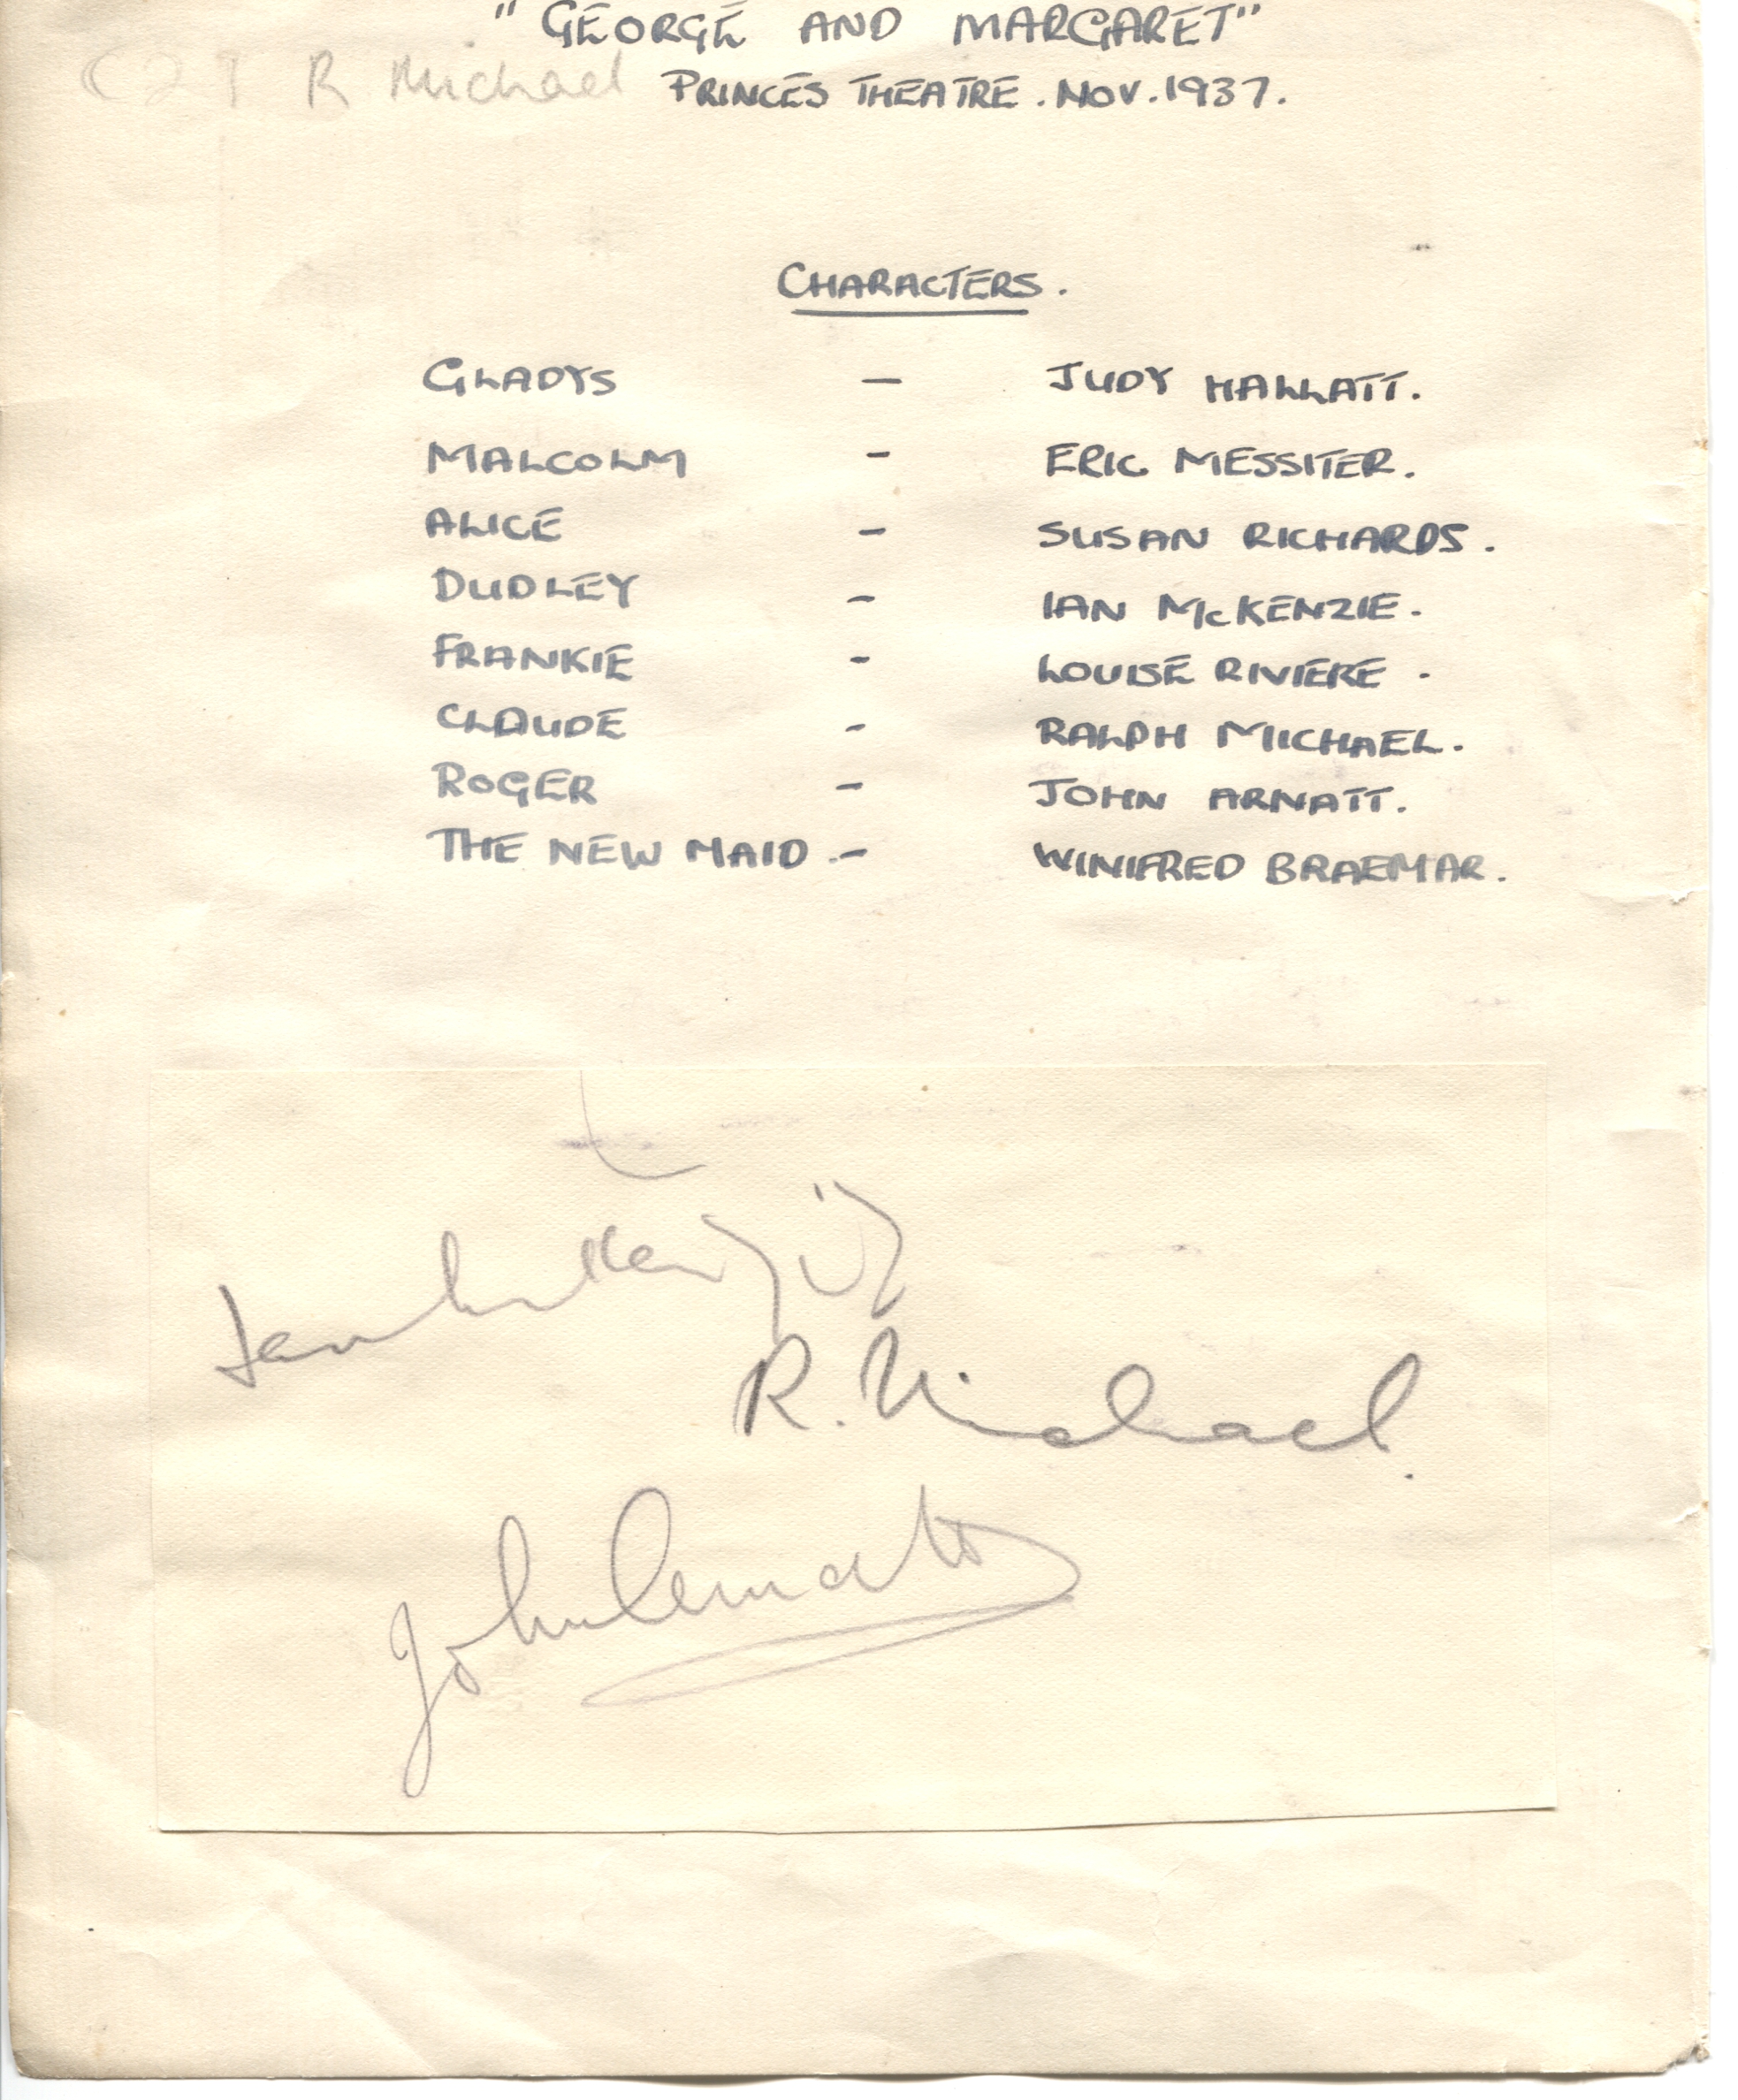 "GEORGE AND MARGARET"
R Michael PRINCES THEATRE. NOV. 1937.
CHARACTERS.
GLADYS – JUDY HALLATT.
MALCOLM – ERIC MESSITER.
ALICE – SUSAN RICHARDS.
DUDLEY – IAN McKENZIE.
FRANKIE – LOUISE RIVIERE.
CLAUDE – RALPH MICHAEL.
ROGER – JOHN ARNATT.
THE NEW MAID – WINIFRED BRAEMAR.
R. Michael.
John Arnatt